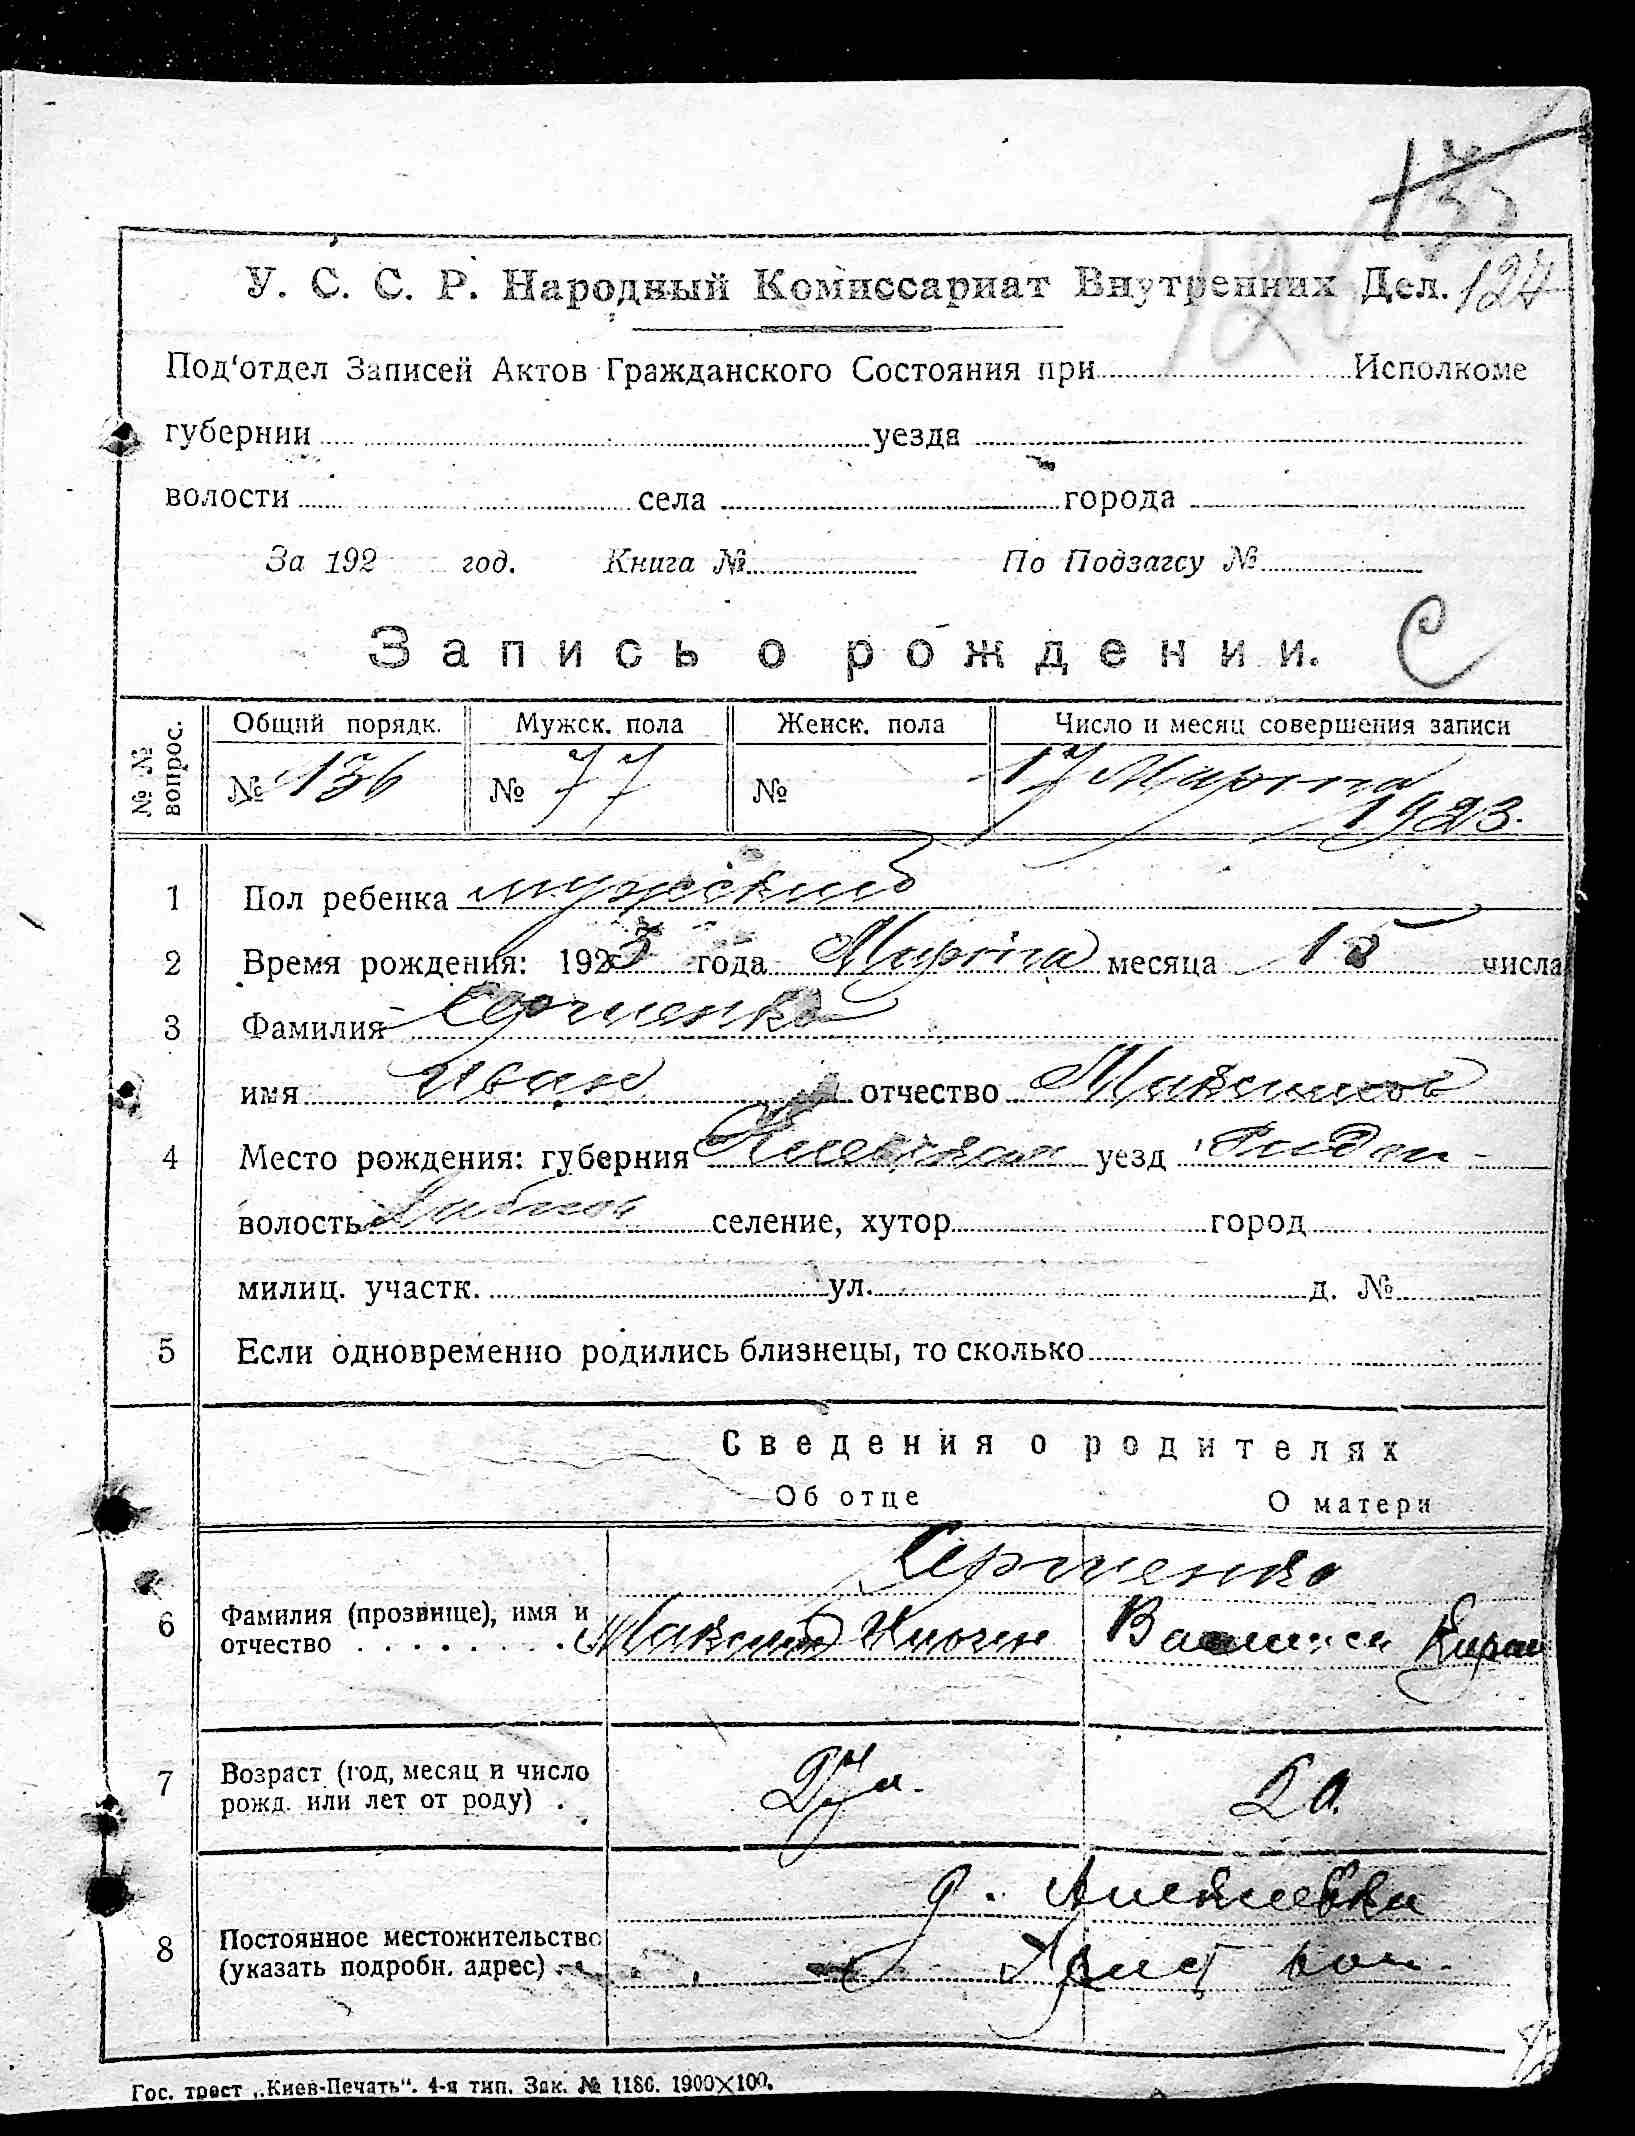 133
126
У. С. С. Р. Народный Комиссариат Внутренних Дел. 127
Под'отдел Записей Актов Гражданского Состояния при Исполкоме
губернии уезда
волости села города
За 192 год. Книга № По Подзагсу №
Запись о рождении. С
№№ вопрос. Общий порядк. Мужск. пола Женск. пола Число и месяц совершения записи
№ 136 № 77 № 17 Марта
1923.
1 Пол ребенка мужский
2 Время рождения: 1923 года Марта месяца 15 числа
3 Фамилия Сергиенко
имя Иван отчество Максимов
4 Место рождения: губерния Киевская уезд
волость селение, хутор город
милиц. участк. ул. д. №
5 Если одновременно родились близнецы, то сколько
Сведения о родителях
Об отце О матери
Сергиенко
6 Фамилия (прозвище), имя и
отчество Максим
7 Возраст (год, месяц и число
рожд. или лет от роду) 27 л. 20.
8 Постоянное местожительство
(указать подробн. адрес)
Гос. трест „Киев-Печать“. 4-я тип. Зак. № 1186. 1900X100.